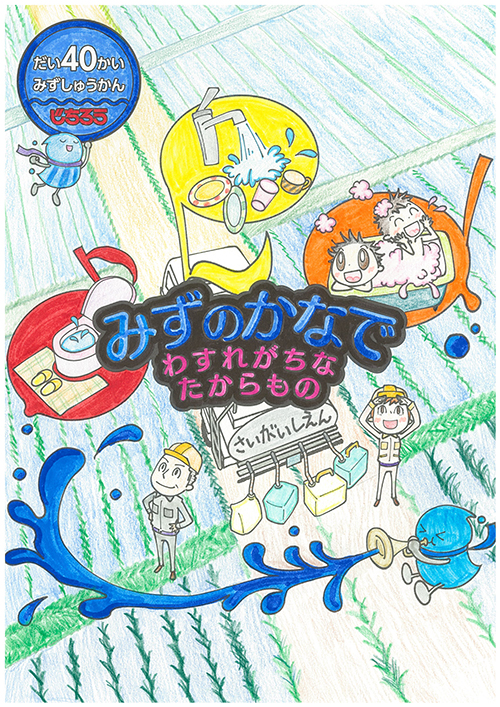 だい40かい
みずしゅうかん
じちろう
みずのかなで
わすれがちな
たからもの
さいがいしえん